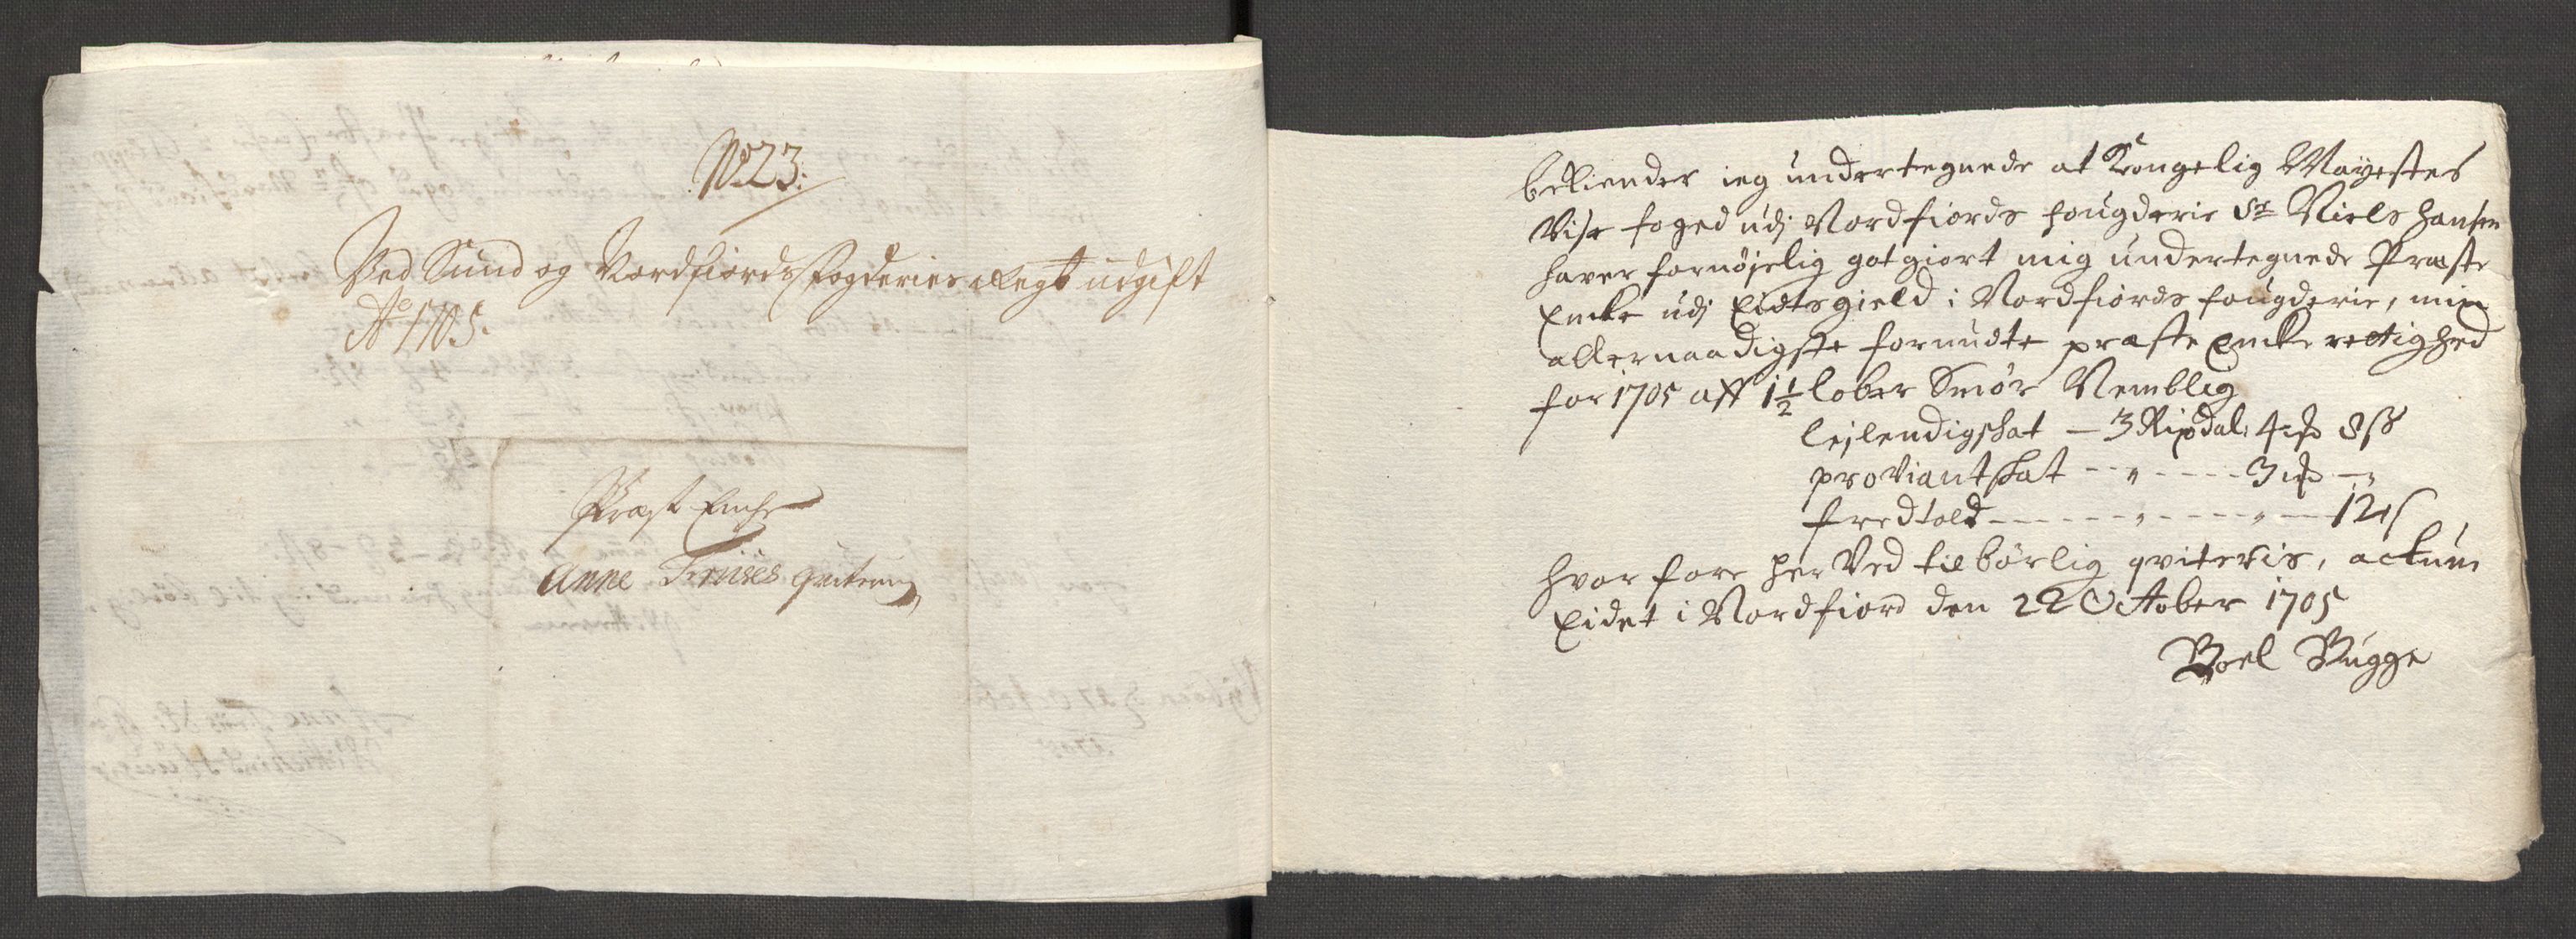 No 23:
Ved Sund og Nordfiords Fogderies Regt udgift
Ao 1705.
Præst Enche
Anne Friises qvitering
bekiender ieg undertegnede at Kongelig Mayestes
Vise foged udj Nordfiords fougderie Sr Niels Hansen
haver fornøjelig got giort mig undertegnede Præste
Encke udj Eidtsgield i Nordfiords fougderie, min
allernaadigste forundte præste Encke rettighed
for 1705 aff 1½ lober Smør Nemblig
lejlendigskat — 3 Rixdal: 4 8 s
proviantskat - - " - - - - 3 —
fredtold - - - - - " - - - - " - 12 s
hvor fore her Ved tilbørlig qviteris, actum
Eidet i Nordfiord den 22 October 1705
Boel Bugge